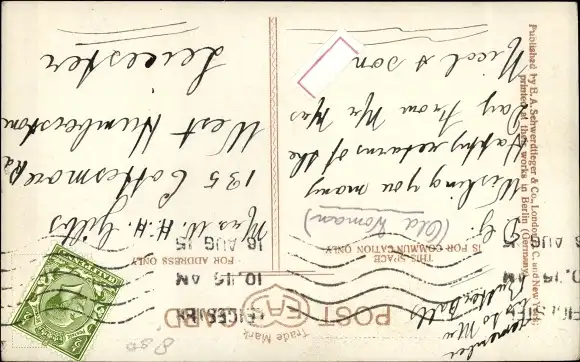 POST CARD
Trade Mark
EAS
THIS SPACE
IS FOR COMMUNICATION ONLY
FOR ADDRESS ONLY
LEICESTER
10.15 AM
18 AUG 15
10.15 AM
AUG 15
remember
to Mrs
(Old Woman)
Wishing you many
Happy returns of the
Day from Mr & Mrs
Nicol & son
Mrs W. H. H. Gibbs
135 Cottesmore Rd
West Humberstone
Leicester
Published by E. A. Schwerdtfeger & Co., London E. C. and New York
printed at their works in Berlin (Germany)
850